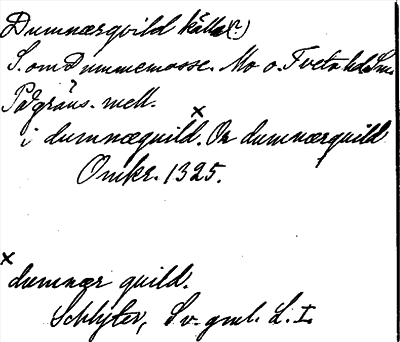 Dumnærqvild källa(?)
S. om Dummemosse. Mo o. Tveta hd Sm.
På gräns. mell.
i dumnæquild.ˣ Or dumnærquild
Omkr. 1325.
x dumnær quild.
Schlyter, Sv. gml. L. I.